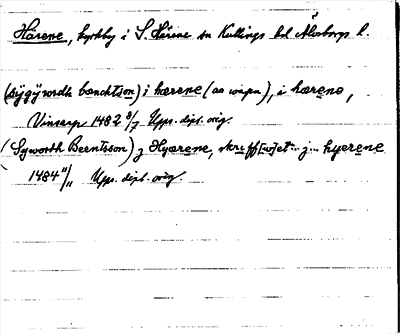 Härene, kyrkby i S. Härene sn Kullings hd Älvsborgs l.
(sÿgÿwordh bænchtson) i hærene (aa wapn), i hærene,
Vinsarp 1482 8/7 Upps. dipl. orig.
(Syworth Berntsson) j Hyærene, skreff[w]et … j … hyerene
1484 11/11 Upps. dipl. orig.